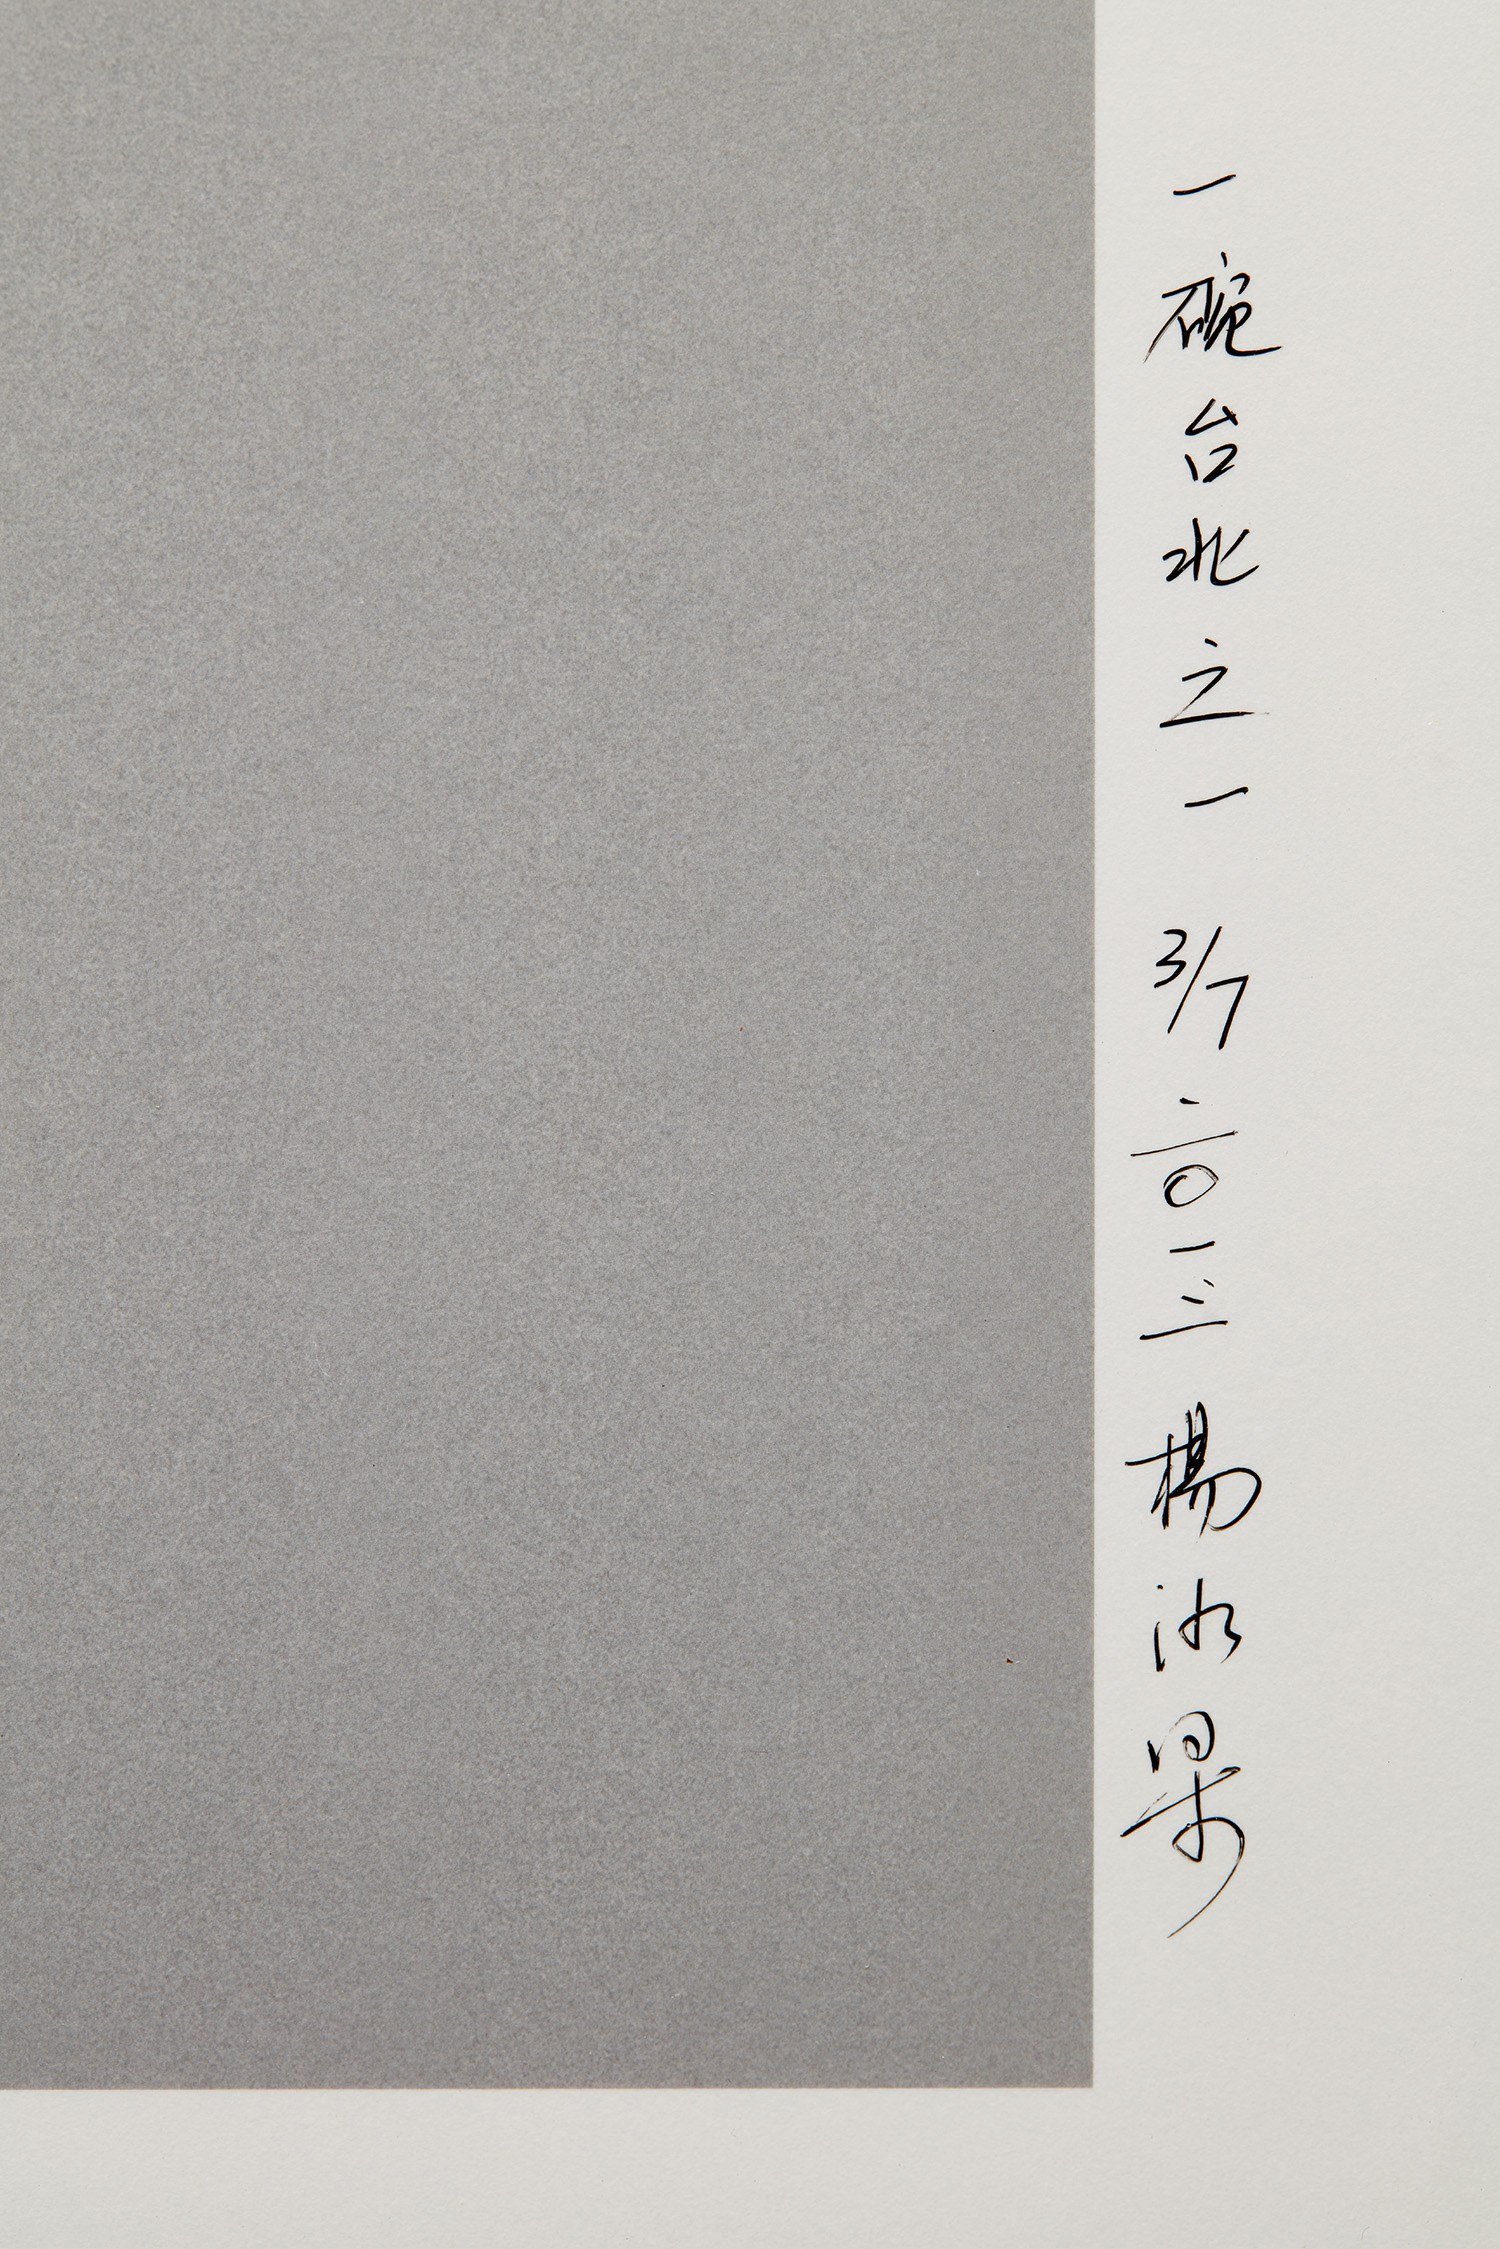 一碗台北之一 3/7 二〇一三 楊泳梁